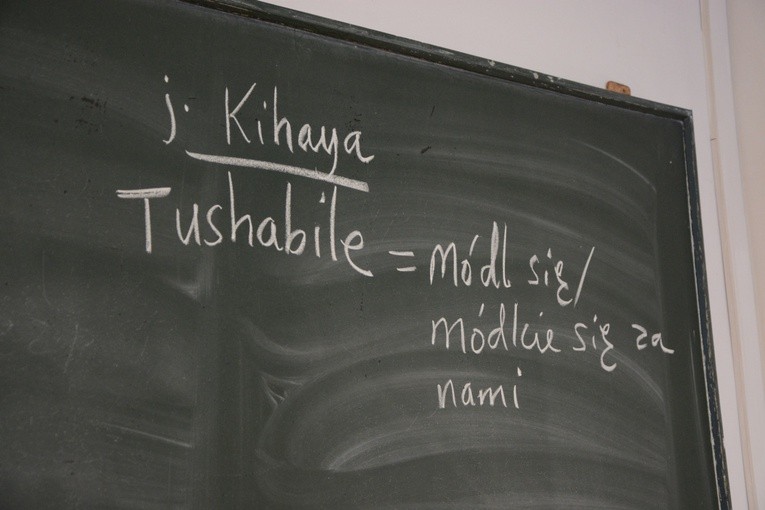 j. Kihaya
Tushabile = módl się/
módlcie się za
nami